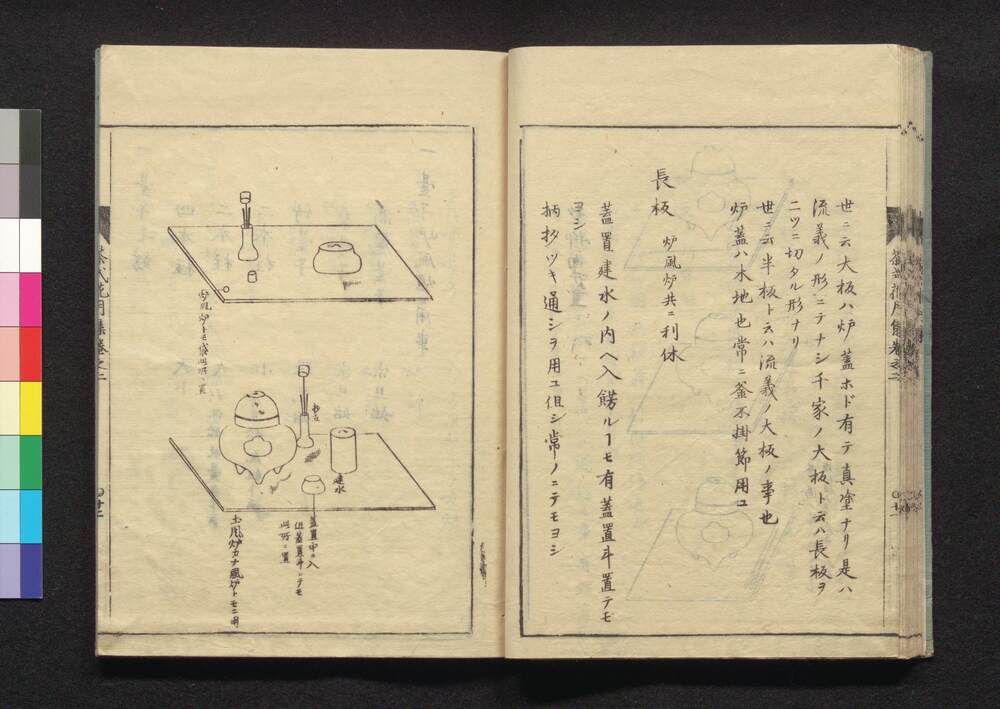 世ニ云大板ハ炉蓋ホド有テ真塗ナリ是ハ
流義ノ形ニテナシ千家ノ大板ト云ハ長板ヲ
二ツニ切タル形ナリ
世ニ云半板ト云ハ流義ノ大板ノ事也
炉蓋ハ木地也常ニ釜不掛節用ユ
長板 炉風炉共ニ利休
蓋置建水ノ内ヘ入餝ルヿモ有蓋置斗置テモ
ヨシ
柄杓ツキ通シヲ用ユ但シ常ノニテモヨシ
建水
蓋置中ヘ入
但蓋置斗ニテモ
此所ニ置
土風炉カナ風炉トモニ用